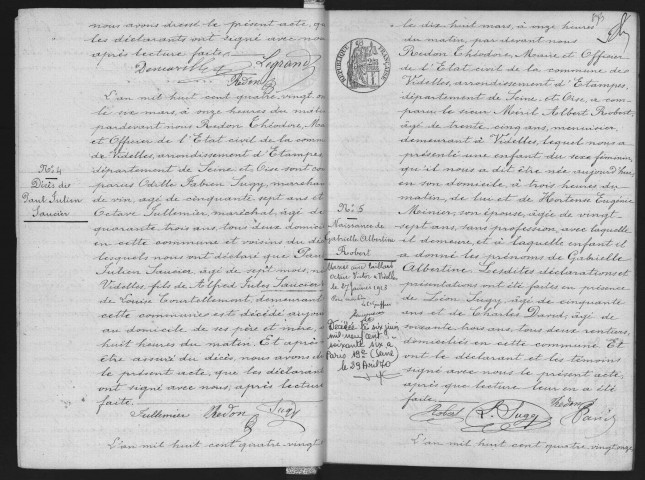 nous avons dressé le présent acte, que
les déclarants ont signé avec nou
après lecture faite.
Legrand
Redon
L'an mil huit cent quatre vingt on
le mars, à onze heures du matin
pardevant nous Redon Théodore, Mai
et Officier de l'Etat civil de la comm
de Videlles, arrondissement d'Etampes
département de Seine et Oise sont com
parus Odille Fabien Sugy, marchan
de vin, âgé de cinquante sept ans et
Octave Sullemier, maréchal, âgé de
quarante trois ans, tous deux domici
en cette commune et voisins du dé
lesquels nous ont déclaré que Pau
Julien Saucier âgé de sept mois, né
Videlles, fils de Alfred Jules Saucier
de Louise Courtellemont, demeurant
cette commune est décédé aujour
au domicile de ses père et mère, à
huit heures du matin. Et après
être assuré du décès, nous avons dre
le présent acte, que les déclarant
ont signé avec nous, après lecture
faite.
Sullemier Redon Sugy
L'an mil huit cent quatre vingt
No 4
Décès de
Paul Julien
Saucier
RÉPUBLIQUE FRANÇAISE
le dix huit mars, à onze heures
du matin, par devant nous
Redon Théodore, Maire et Officier
de l'Etat civil de la commune de
Videlles, arrondissement d'Etampes,
département de Seine et Oise, a com
paru le sieur Robert,
âgé de trente cinq ans, menuisier
demeurant à Videlles, lequel nous a
présenté une enfant du sexe féminin,
qu'il nous a dit être née aujourd'hui,
en son domicile, à trois heures du
matin, de lui et de Hortense Eugénie
Meunier, son épouse, âgée de vingt
sept ans, sans profession, avec laquelle
il demeure, et à laquelle enfant il
a donné les prénoms de Gabrielle
Albertine. Lesdites déclarations et
présentations ont été faites en présence
de Léon Sugy, âgé de cinquante
ans et de Charles David, âgé de
soixante trois ans, tous deux rentiers,
domiciliés en cette commune Et
ont le déclarant et les témoins
signé avec nous le présent acte,
après que lecture leur en a été
faite.
Redon
Robert L. Sugy David
L'an mil huit cent quatre vingt onze
No 5
Naissance de
Gabrielle Albertine
Robert
Mariée avec
à Videlles
le 27 Janvier 1913
Décédée le six juin
mil neuf cent
soixante six à
Paris 19e (Seine)
le 29 Avril 70